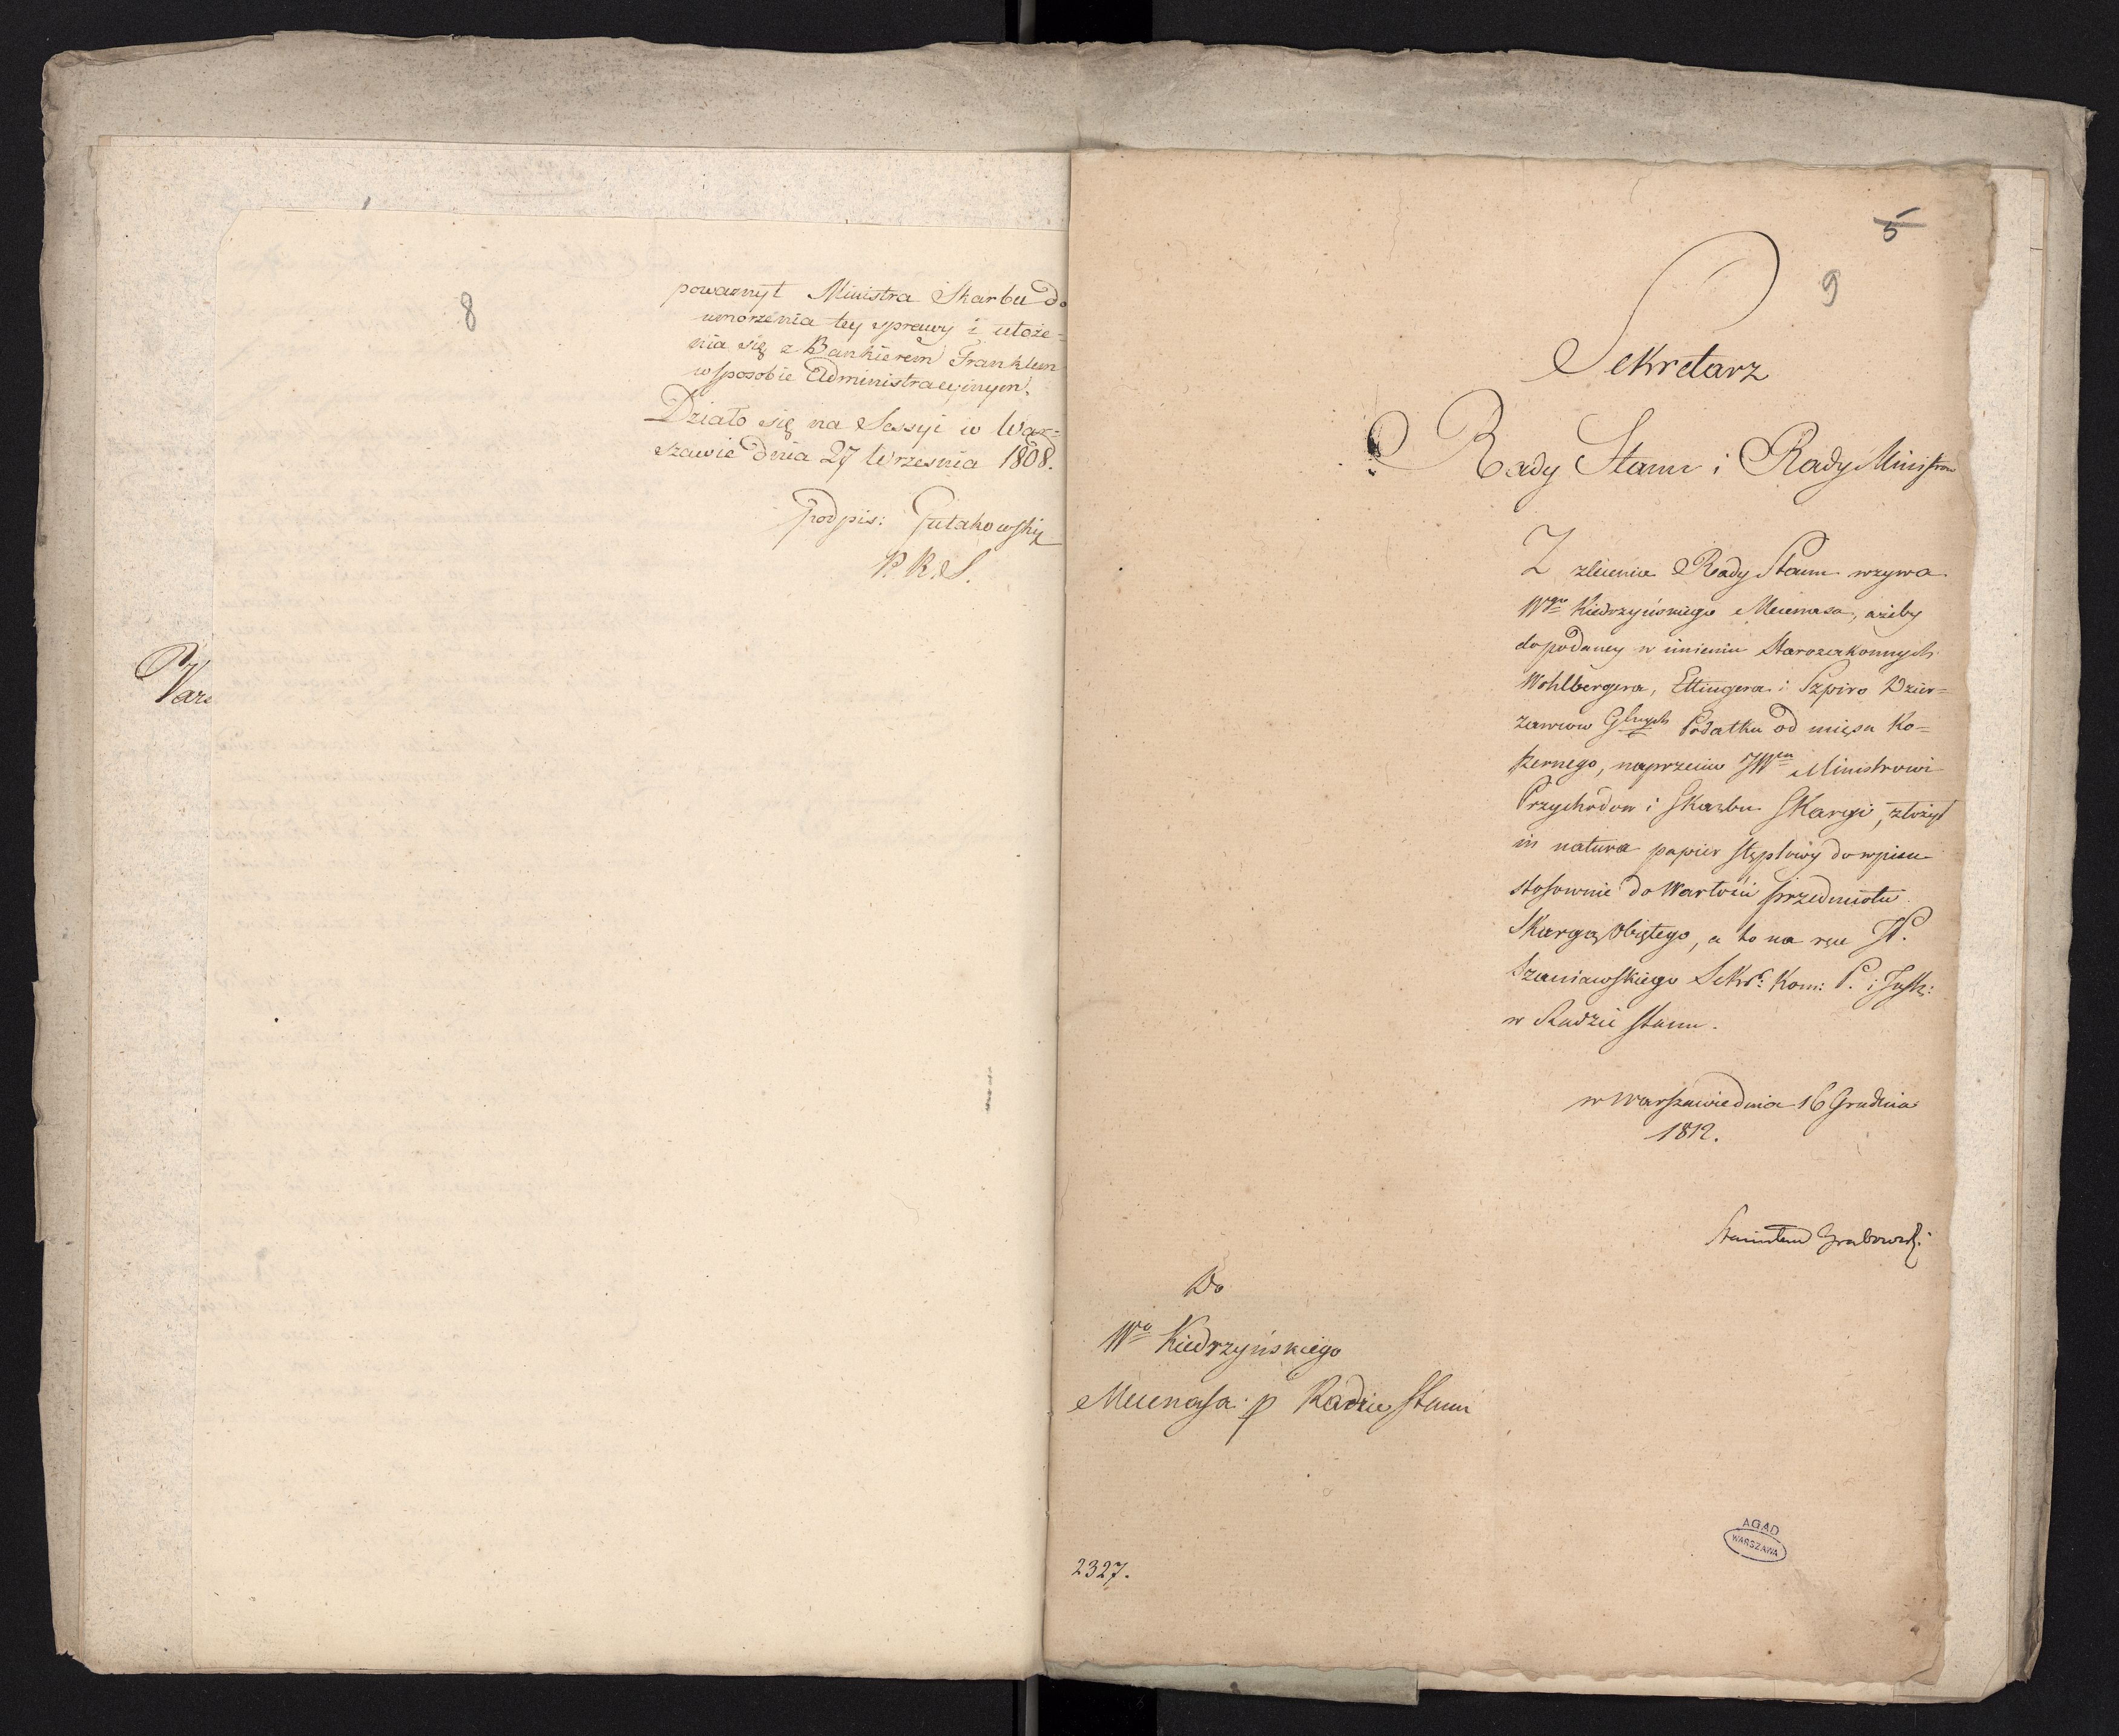 8
poważnył Ministra Skarbu do
umorzenia tey sprawy i ułoże=
nia się z Bankierem Franklem
w sposobie Administracyinym.
Działo się na Sessyi w War=
szawie dnia 27 Września 1808.
Podpis: Gutakowski
P. R. S.
5
9
Sekretarz
Rady Stanu i Rady Ministrow
Z zlecenia Rady Stanu wzywa
Wgo Kiedrzyńskiego Mecenasa, ażeby
do podaney w imieniu Starozakonnych
Wohlbergera, Ettingera i Szpiro Dzier=
zawcow Glnych Podatku od mięsa Ko=
szernego, naprzeciw JWmu Ministrowi
Przychodow i Skarbu Skargi, złożył
in natura papier stęplowy do wpisu
stosownie do Wartości przedmiotu
Skargą obiętego, a to na ręce JP.
Szaniawskiego Sekr: Kom: P. i Inst:
w Radzie Stanu.
w Warszawie dnia 16 Grudnia
1812.
Stanisław Grabowski
Do
Wo Kiedrzyńskiego
Mecenasa p Radzie Stanu
2327.
AGAD
WARSZAWA